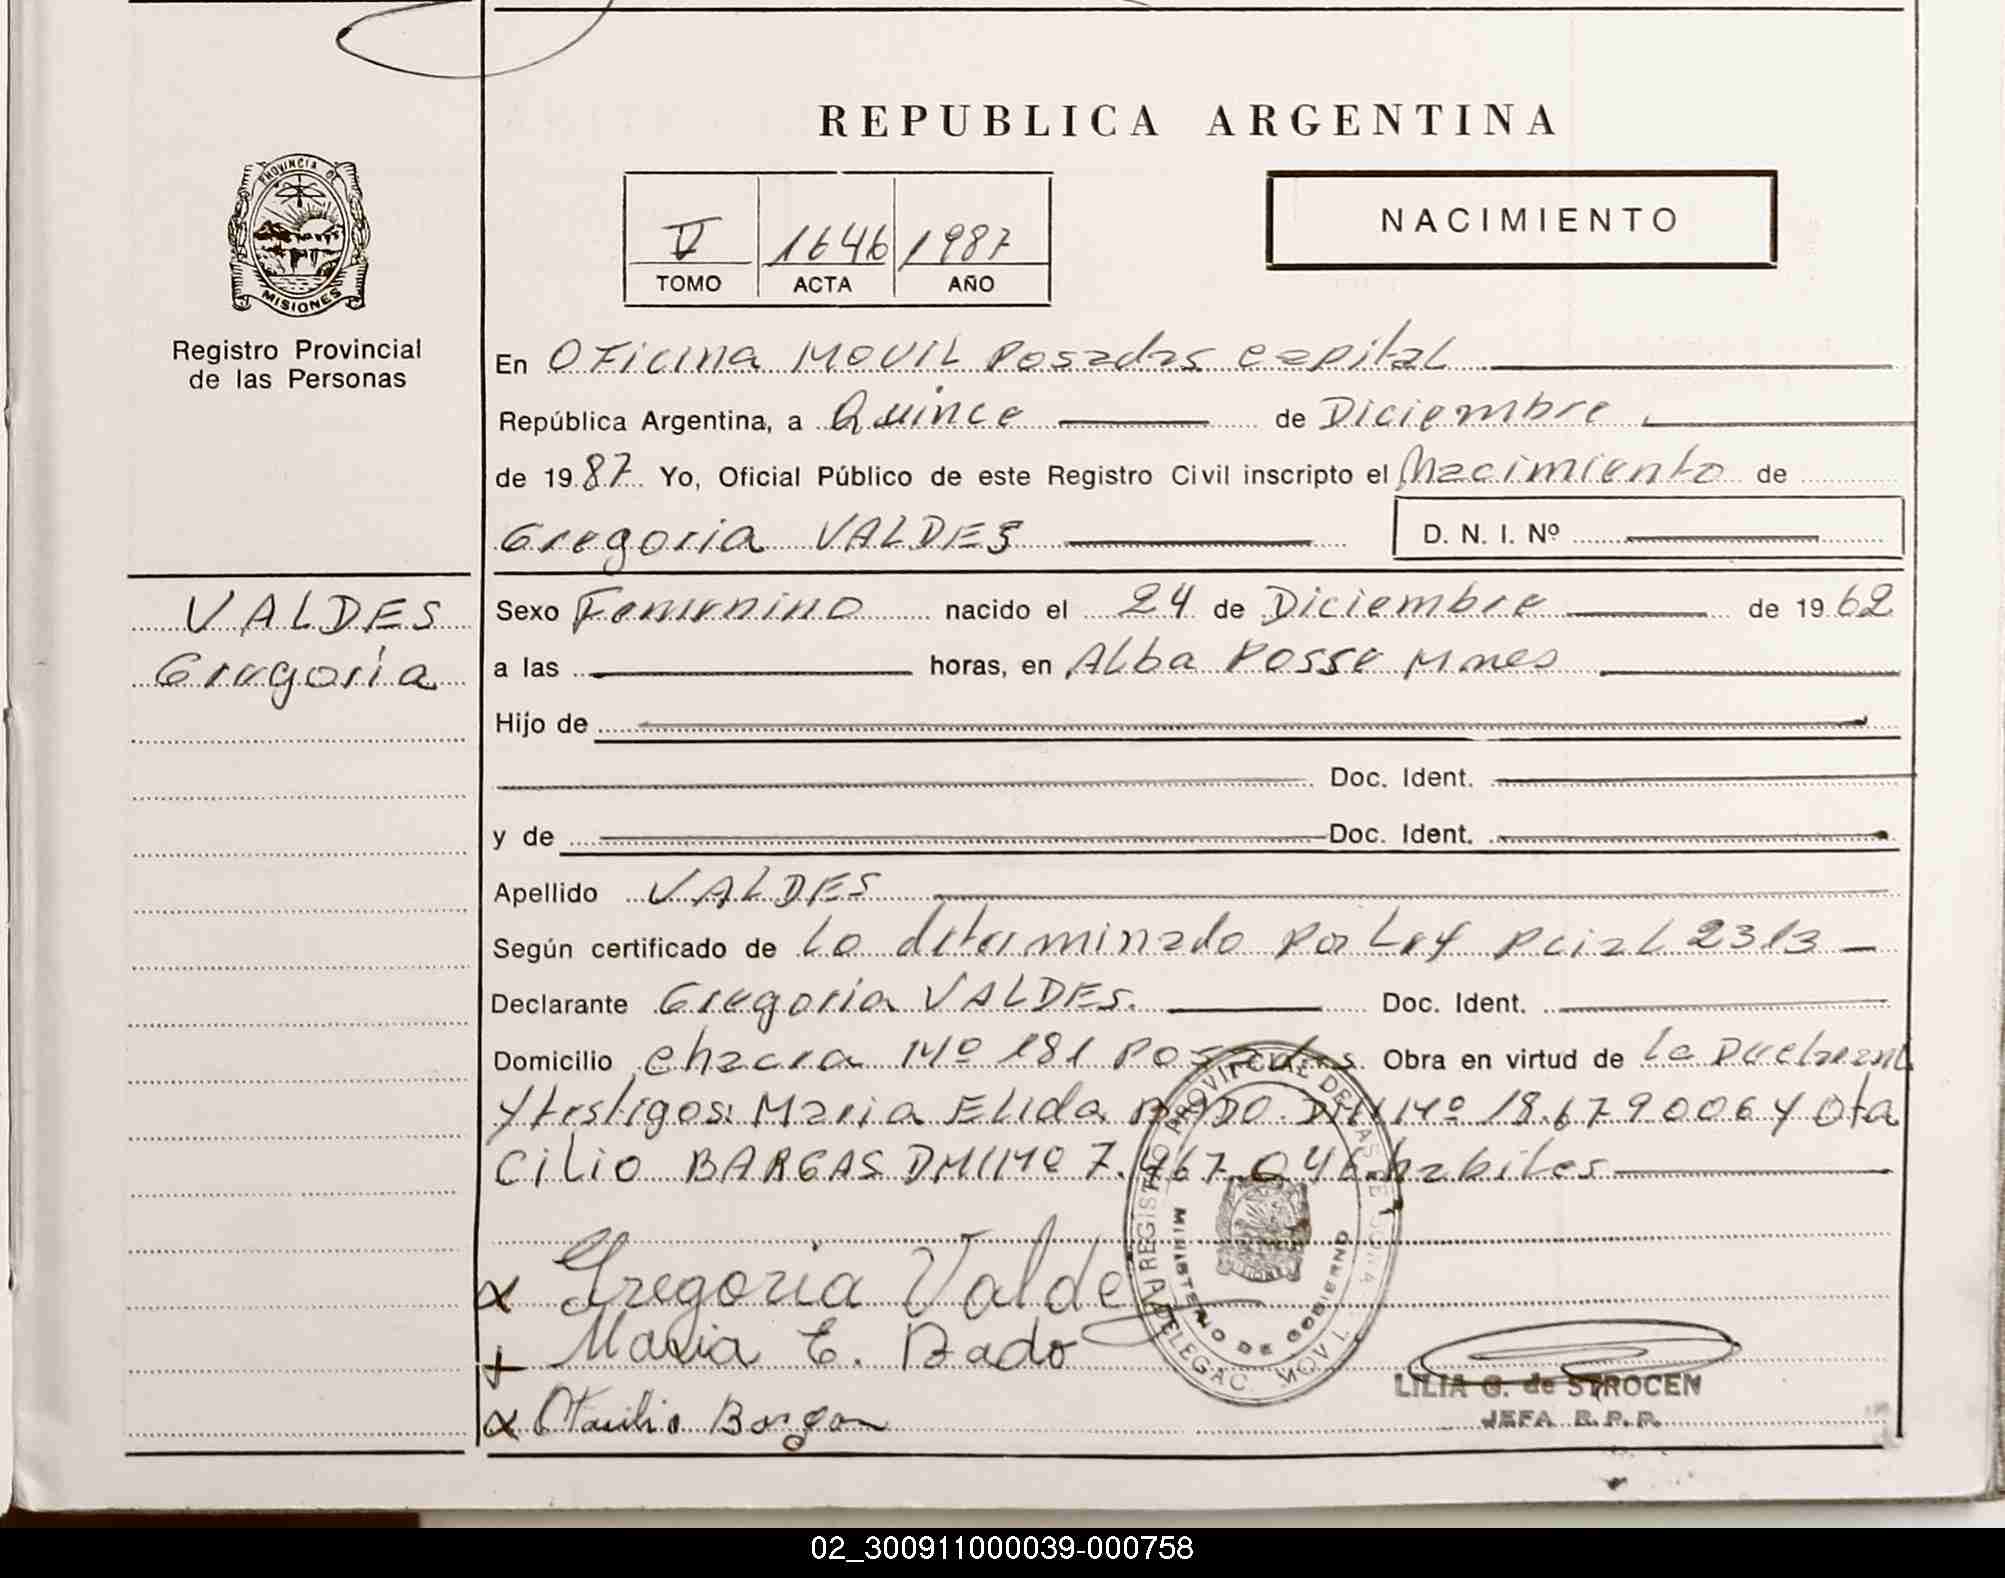 REPUBLICA ARGENTINA
PROVINCIA DE
MISIONES
Registro Provincial
de las Personas
V 1646 1987
TOMO ACTA AÑO
NACIMIENTO
En OFicina MOVIL Posadas capital
República Argentina, a Quince de Diciembre
de 1987 Yo, Oficial Público de este Registro Civil inscripto el Nacimiento de
Gregoria VALDES D. N. I. Nº
VALDES
Gregoria
Sexo Femenino nacido el 24 de Diciembre de 1962
a las horas, en Alba Posse Mnes
Hijo de
Doc. Ident.
y de Doc. Ident.
Apellido VALDES
Según certificado de Lo determinado por Ley Pcial 2313
Declarante Gregoria VALDES. Doc. Ident.
Domicilio chacra Nº 181 Posadas. Obra en virtud de La
y testigos: Maria Elida BADO. DNI Nº 18.679006 y Ota
cilio BARGAS DNI Nº 7. 046 habiles
Gregoria Valdez
Maria E. Bado
Otacilio Bargas
REGISTRO PROVINCIAL DE LAS
MINISTERIO DE GOBIERNO
DELEGAC. MOV. 1
LILIA G. de STROCEN
JEFA R.P.P.
02_300911000039-000758